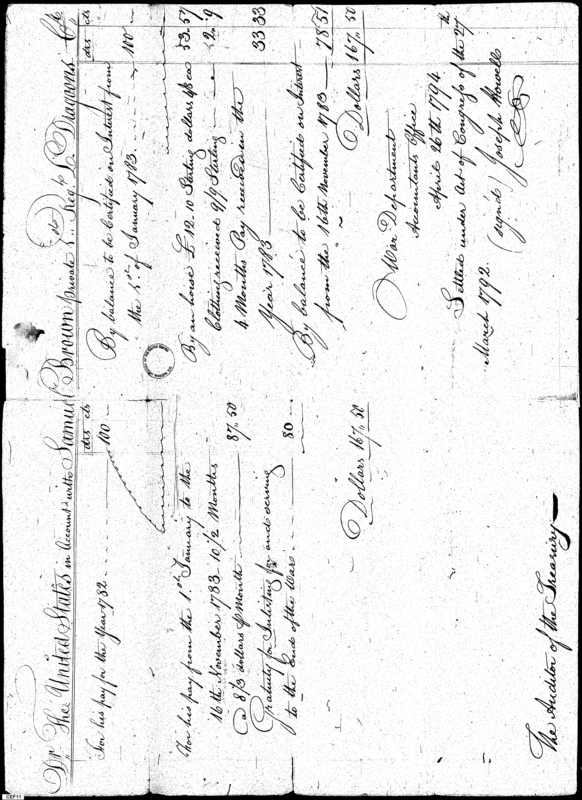 Dr. The United States in Account with Samuel Brown private Regt. L. Dragoons Cr.
dts cts
For his pay for the Year 1782 100
For his pay from the 1st January to the
16th November 1783 10 1/2 Months
@ 8/3 dollars Month 87.50
Gratuity for Inlisting for and serving
to the End of the War 80
Dollars 167.50
dts cts
By balance to be Certified on Interest from
the 1st of January 1783 100
By an horse £ 12.10 Sterling dollars 53.57
Clothing received 9/9 Sterling 2.19
4 Months Pay received in the
Year 1783 33 33
By balance to be Certified on Interest
from the 16th November 1783 78 51
Dollars 167.50
War Department
Accountants Office
April 26th 1794
Settled under Act of Congress of the 27th
March 1792.
(signd) Joseph Howell
The Auditor of the Treasury